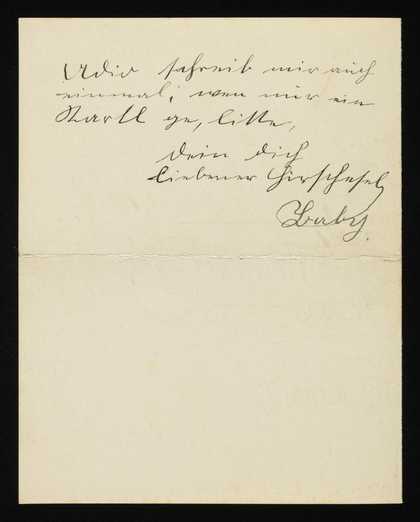 Adio schreib mir auch
einmal, wen nur ein
Kartl ge, bitte,
Dein dich
liebener Hirschesel
Baby.